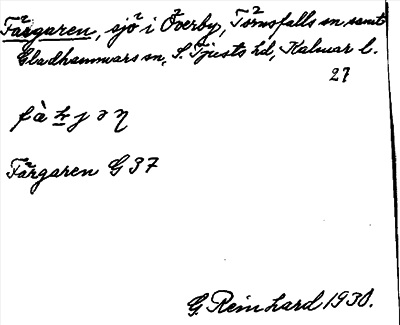 Färgaren, sjö i Överby, Törnsfalls sn samt
Gladhammars sn, S. Tjusts hd, Kalmar l.
27
Färgaren G 37
G. Reinhard 1930.